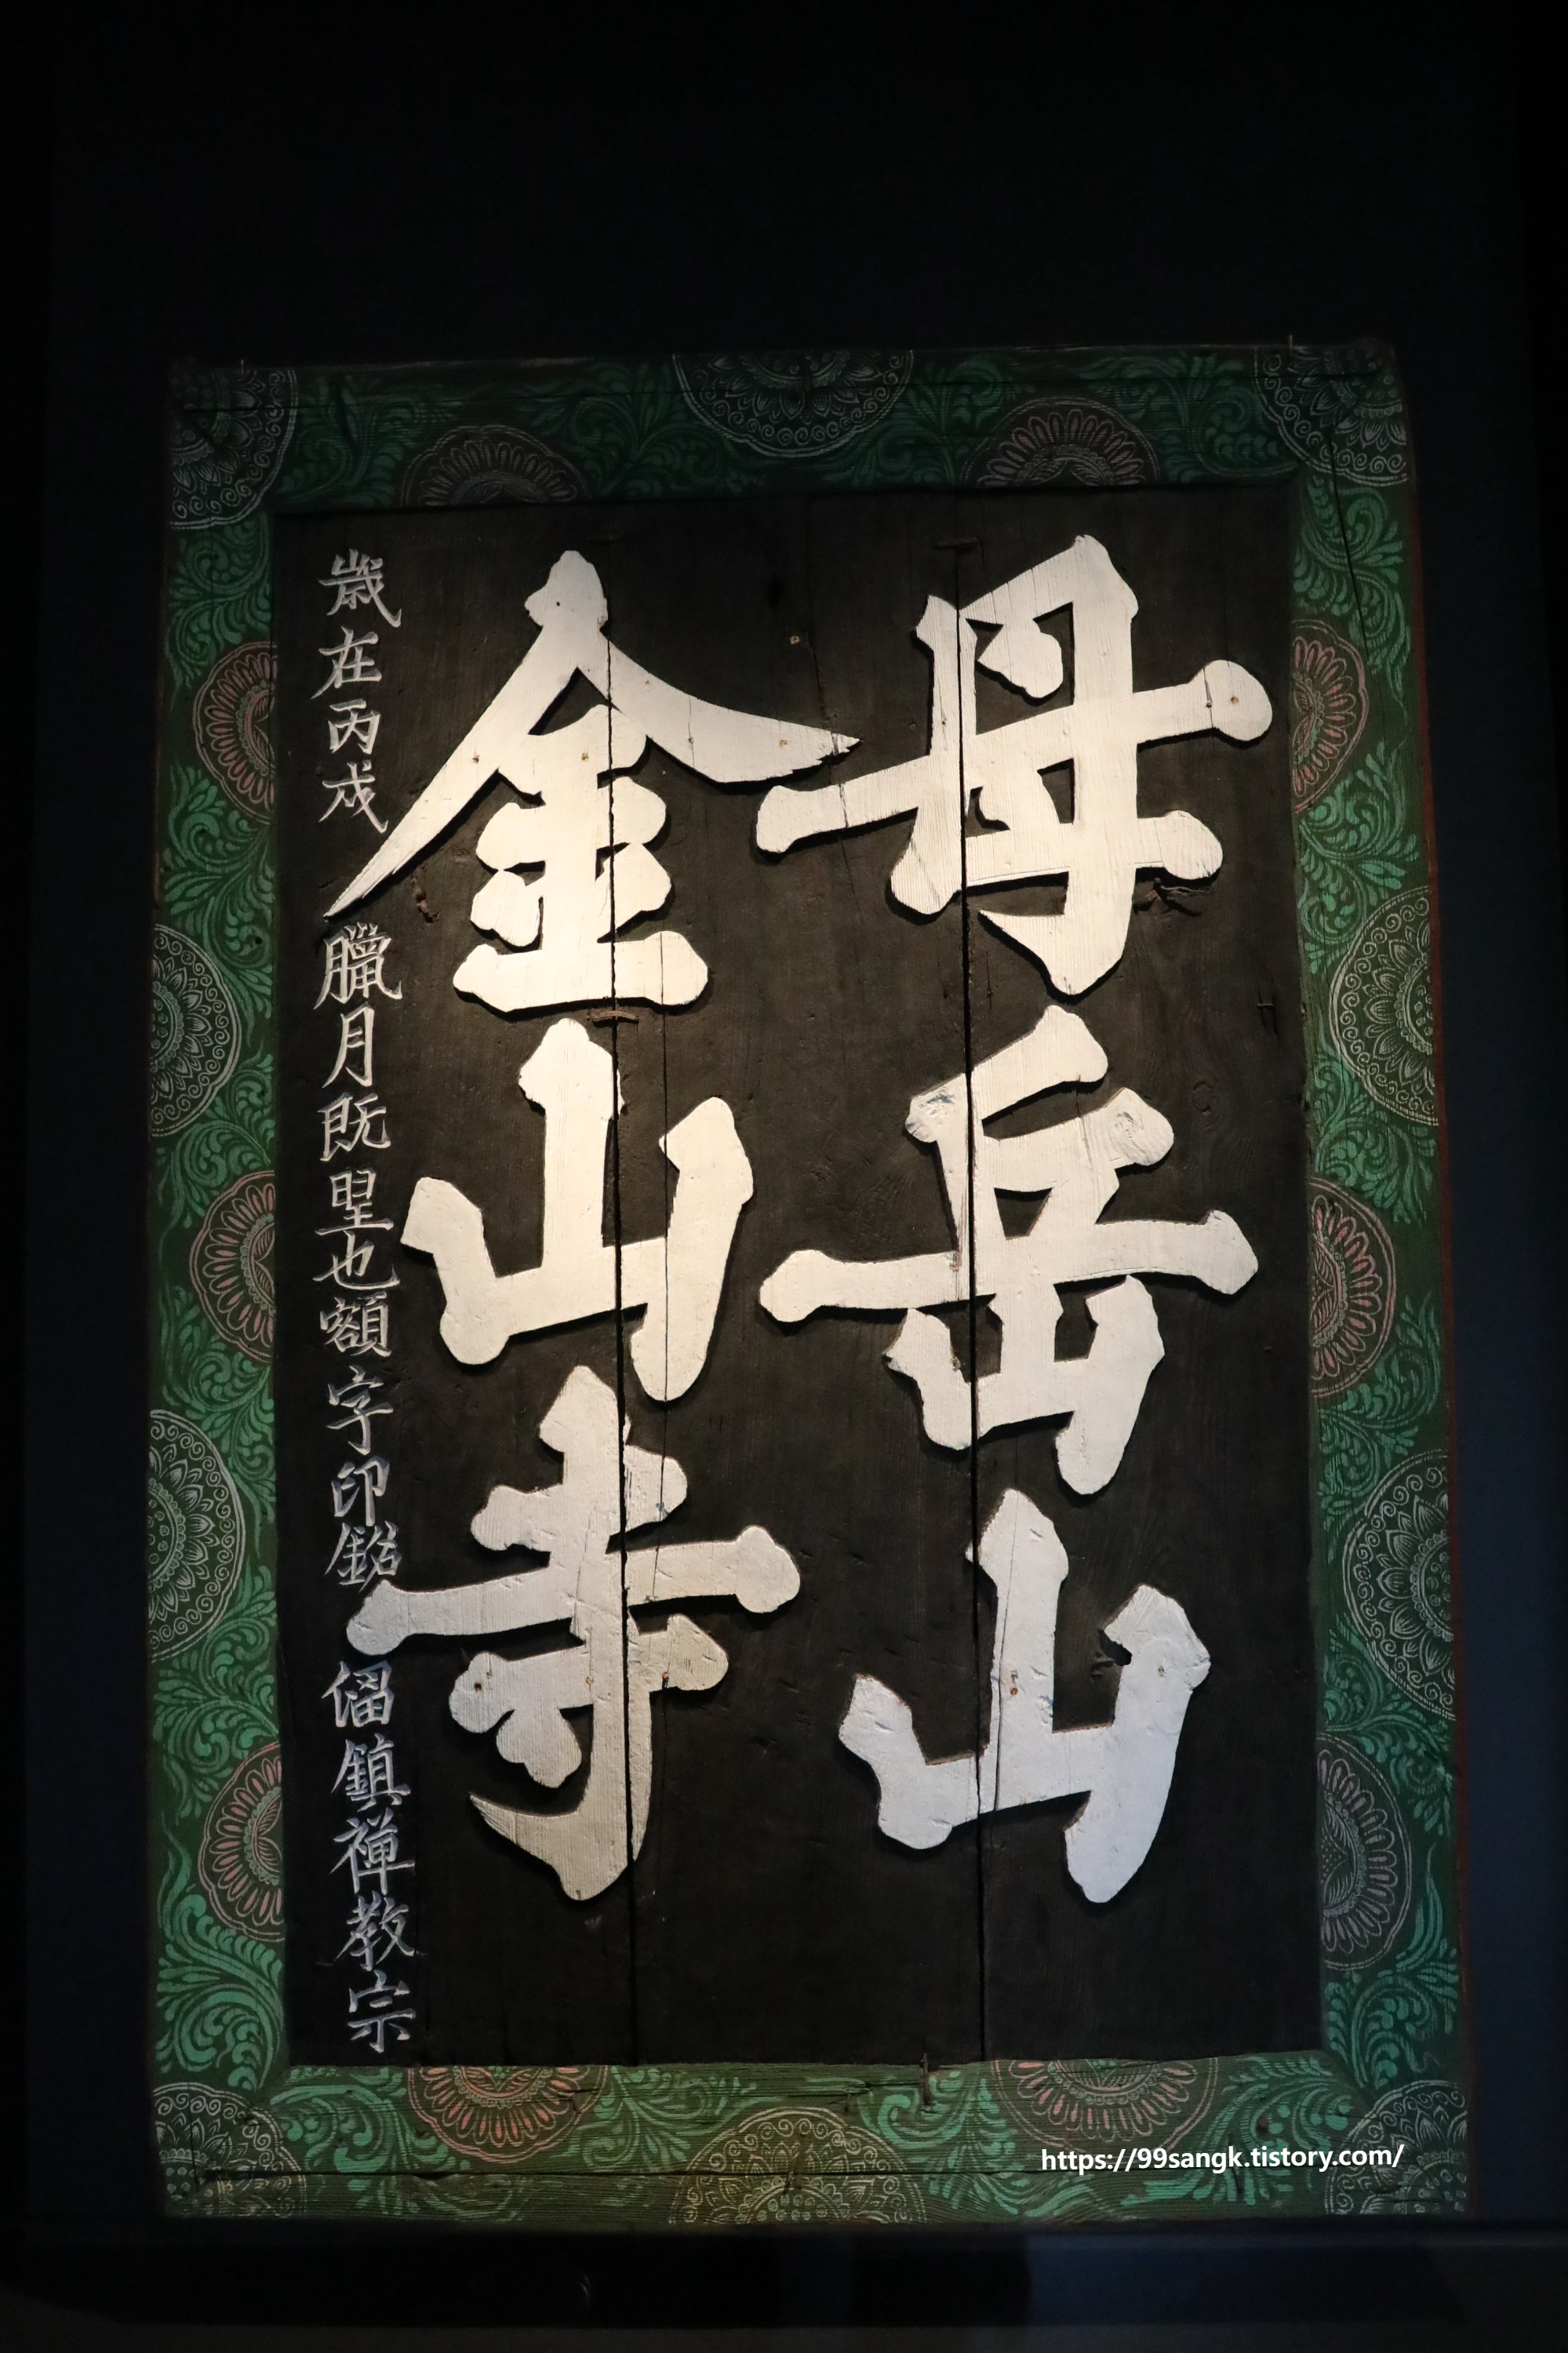 母岳山
金山寺
歲在丙戌臘月旣朢也額字印鉛 鎮禪教宗
https://99sangk.tistory.com/